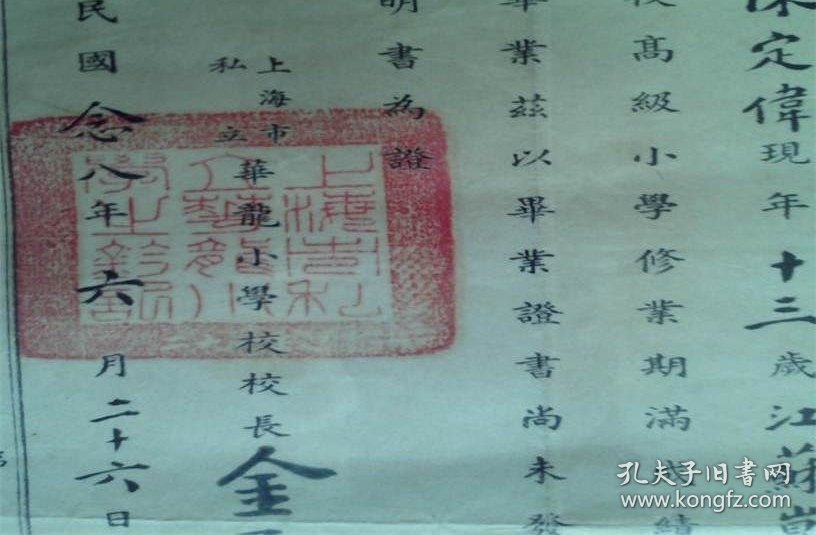 定偉現年十三歲江蘇
高級小學修業期滿成績
畢業茲以畢業證書尚未發
明書為證
上海市私立華龍小學校校長金
民國念八年六月二十六日
孔夫子旧书网
www.kongfz.com